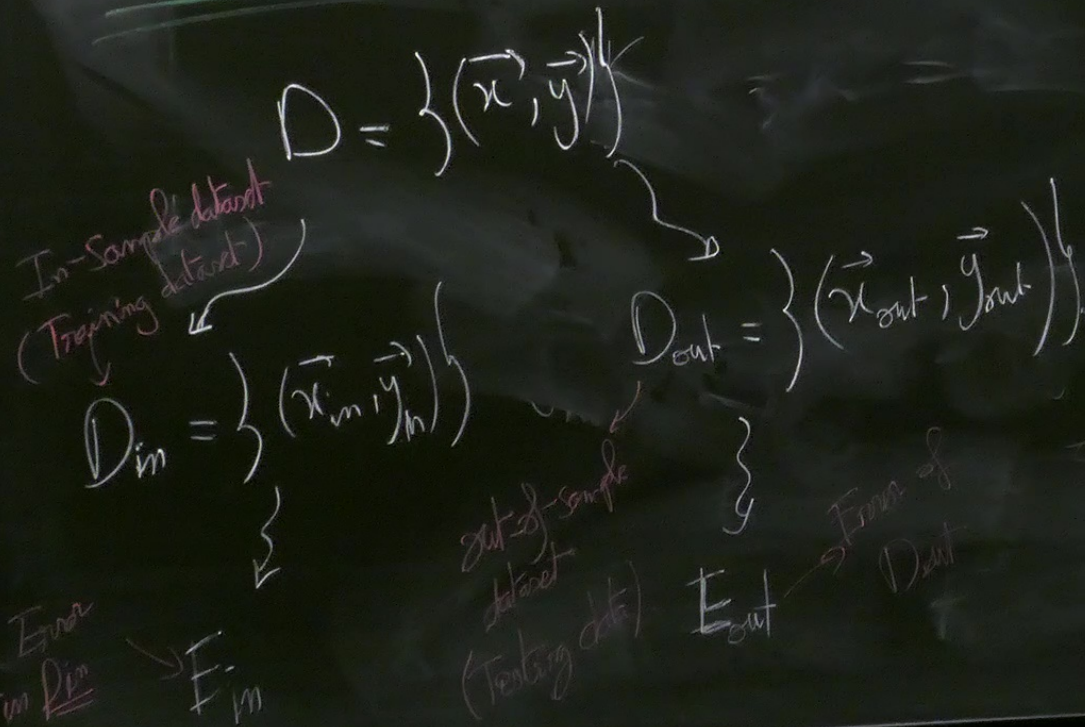 D = {(x⃗, y⃗)}
In-Sample dataset
(Training dataset)
D_in = {(x⃗_in, y⃗_in)}
D_out = {(x⃗_out, y⃗_out)}
out-of-sample
dataset
(Testing data)
Error
in D_in
E_in
E_out
Error of
D_out